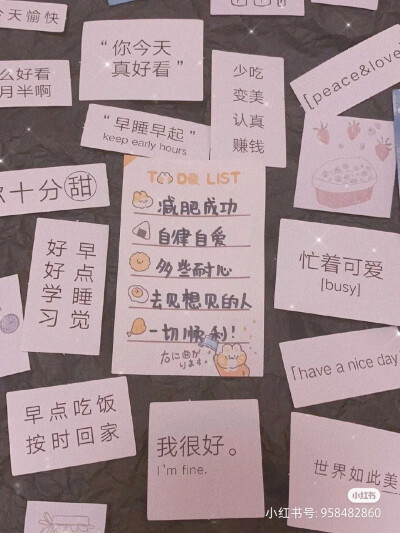 今天愉快
“你今天
真好看”
[peace&love]
么好看
月半啊
少吃
变美
认真
赚钱
“早睡早起”
keep early hours
十分甜
TO DO LIST
减肥成功
自律自爱
多些耐心
去见想见的人
一切顺利!
右に曲が
ります。
早点睡觉
好好学习
忙着可爱
[busy]
[have a nice day
早点吃饭
按时回家
我很好。
I'm fine.
世界如此美
小红书
小红书号: 958482860